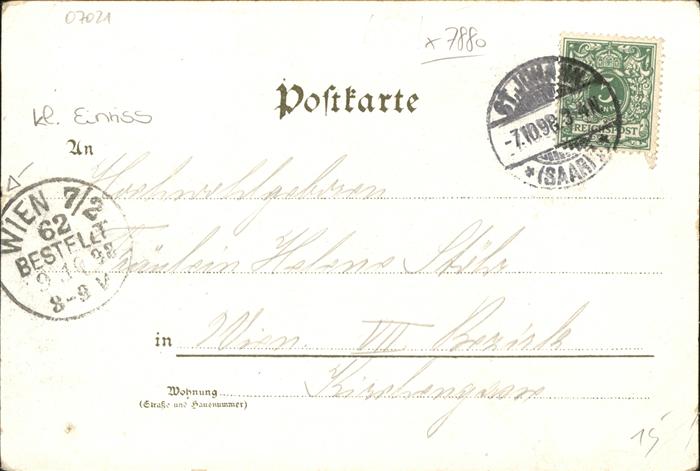 07021
x 7880
kl. Einriss
Postkarte
ST. JOHANN
-7.10.98. 3-4N.
* (SAAR) *
5
REICHSPOST
An
Hochwohlgeboren
WIEN 7/2
62
BESTELLT
9.10.98
8-9 V
Fräulein Helene Stöhr
in Wien VII Bezirk
Wohnung
(Straße und Hausnummer)
15